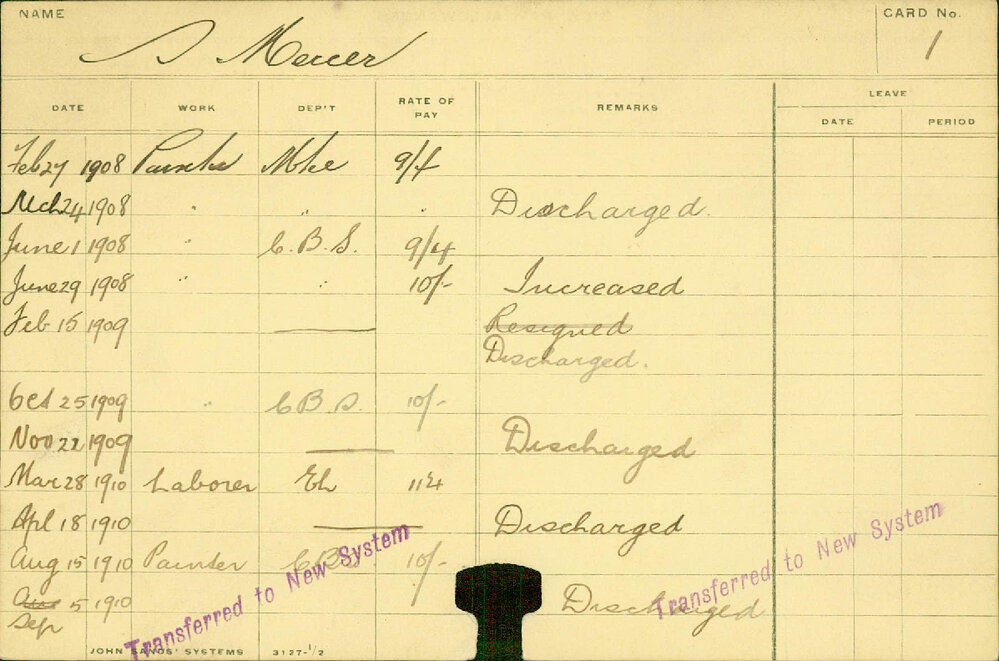 NAME CARD No.
S Mercer 1
DATE WORK DEP'T RATE OF PAY REMARKS LEAVE
DATE PERIOD
Feb 27 1908 Painter Mtce 9/4
Mch 24 1908 " " " Discharged.
June 1 1908 " C.B.S. 9/4
June 29 1908 " " 10/- Increased
Feb 15 1909 Resigned
Discharged.
Oct 25 1909 " C.B.S. 10/-
Nov 22 1909 Discharged
Mar 28 1910 Laborer Eh 11¼
Apl 18 1910 Discharged
Aug 15 1910 Painter C.B.S. 10/-
Aug 5 1910 Discharged
Sep
Transferred to New System
Transferred to New System
JOHN SANDS' SYSTEMS 3127-1/2